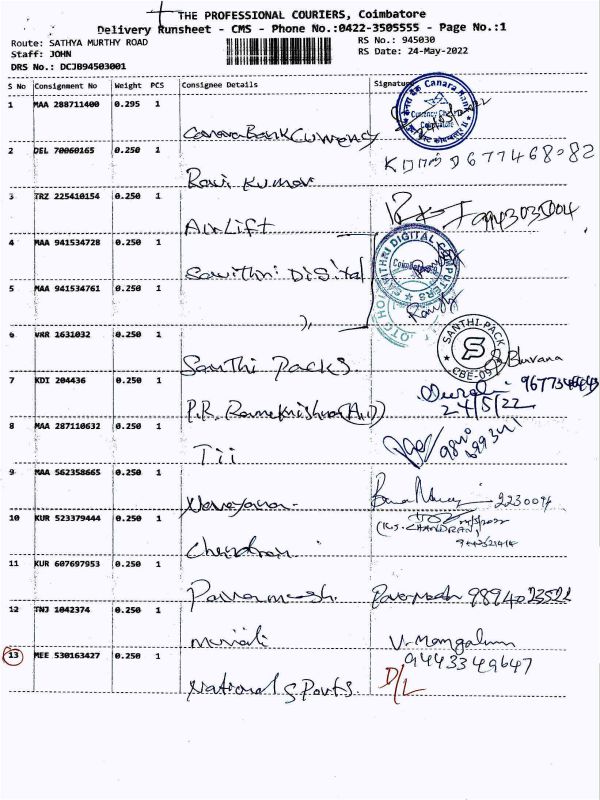 THE PROFESSIONAL COURIERS, Coimbatore
Delivery Runsheet - CMS - Phone No.:0422-3505555 - Page No.:1
Route: SATHYA MURTHY ROAD RS No.: 945030
Staff: JOHN RS Date: 24-May-2022
DRS No.: DCJB94503001
S No Consignment No Weight PCS Consignee Details Signature
1 MAA 288711400 0.295 1
Canara Bank Currency
Canara Bank
Currency Chest
Coimbatore
2 DEL 70060165 0.250 1
Ravi Kumar
9677468082
3 TRZ 225410154 0.250 1
Air Lift
9943035004
4 MAA 941534728 0.250 1
Sawithri Digital
SAVITHRI DIGITAL COMPUTERS
Coimbatore
5 MAA 941534761 0.250 1
6 VRR 1631032 0.250 1
Santhi Packs.
SANTHI-PACK
S
CBE-09
Bhuvana
7 KDI 204436 0.250 1
P.R. Ramakrishna (AUD)
24/5/22
8 MAA 287110632 0.250 1
Tii
9 MAA 562358665 0.250 1
Narayana.
2230094
10 KUR 523379444 0.250 1
Chendran.
(K.J. CHANDRAN)
11 KUR 607697953 0.250 1
Paramesh.
Paramesh 9894023522
12 TNJ 1042374 0.250 1
V. Mangalam
9443349647
13 MEE 530163427 0.250 1
National Sports.
D/L